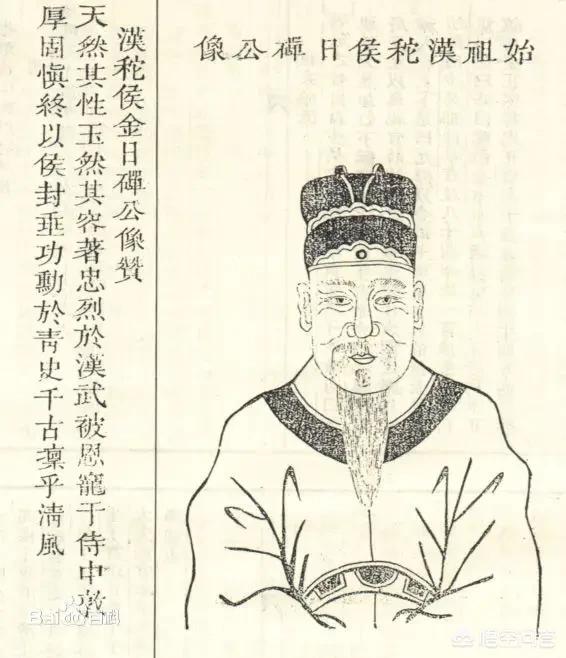 始祖漢秺侯日磾公像
漢秺侯金日磾公像贊
天然其性玉然其容著忠烈於漢武被恩寵于侍中
厚固愼終以侯封垂功勳於靑史千古凜乎淸風
Bai du 百科
悟空问答